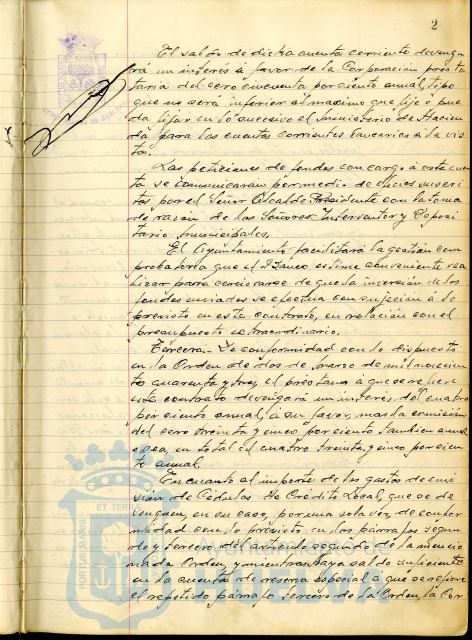 2
El saldo de dicha cuenta corriente devenga-
rá un interés á favor de la Corporación presta-
taria del cero cincuenta por ciento anual, tipo
que no será inferior al máximo que fije ó pue-
da fijar en lo sucesivo el Ministerio de Hacien-
da para las cuentas corrientes bancarias á la vis-
ta.
Las peticiones de fondos con cargo á esta cuen-
ta se comunicarán por medio de oficios suscri-
tos por el Señor Alcalde Presidente con la toma
de razón de los Señores Interventor y Deposi-
tario municipales.
El Ayuntamiento facilitará la gestión com-
probatoria que el Banco estime conveniente rea-
lizar para cerciorarse de que la inversión de los
fondos enviados se efectua con sujeción á lo
previsto en este contrato, en relación con el
presupuesto extraordinario.
Tercera.- De conformidad con lo dispuesto
en la Orden de dos de marzo de mil novecien-
tos cuarenta y tres, el préstamo á que se refiere
este contrato devengará un interés del cuatro
por ciento anual, á su favor, mas la comisión
del cero treinta y cinco por ciento tambien anual
o sea, en total el cuatro treinta y cinco por cien-
to anual.
En cuanto al importe de los gastos de emi-
sión de Cédulas de Crédito Local, que se de-
venguen, en su caso, por una sola vez, de confor-
midad con lo previsto en los párrafos segun-
do y tercero del artículo segundo de la mencio-
nada Orden, y mientras haya saldo suficiente
en la cuenta de reserva especial á que se refiere
el repetido párrafo tercero de la Orden, la Cor-
PORTUS MAURIS ET TERRA
Ayuntamiento de